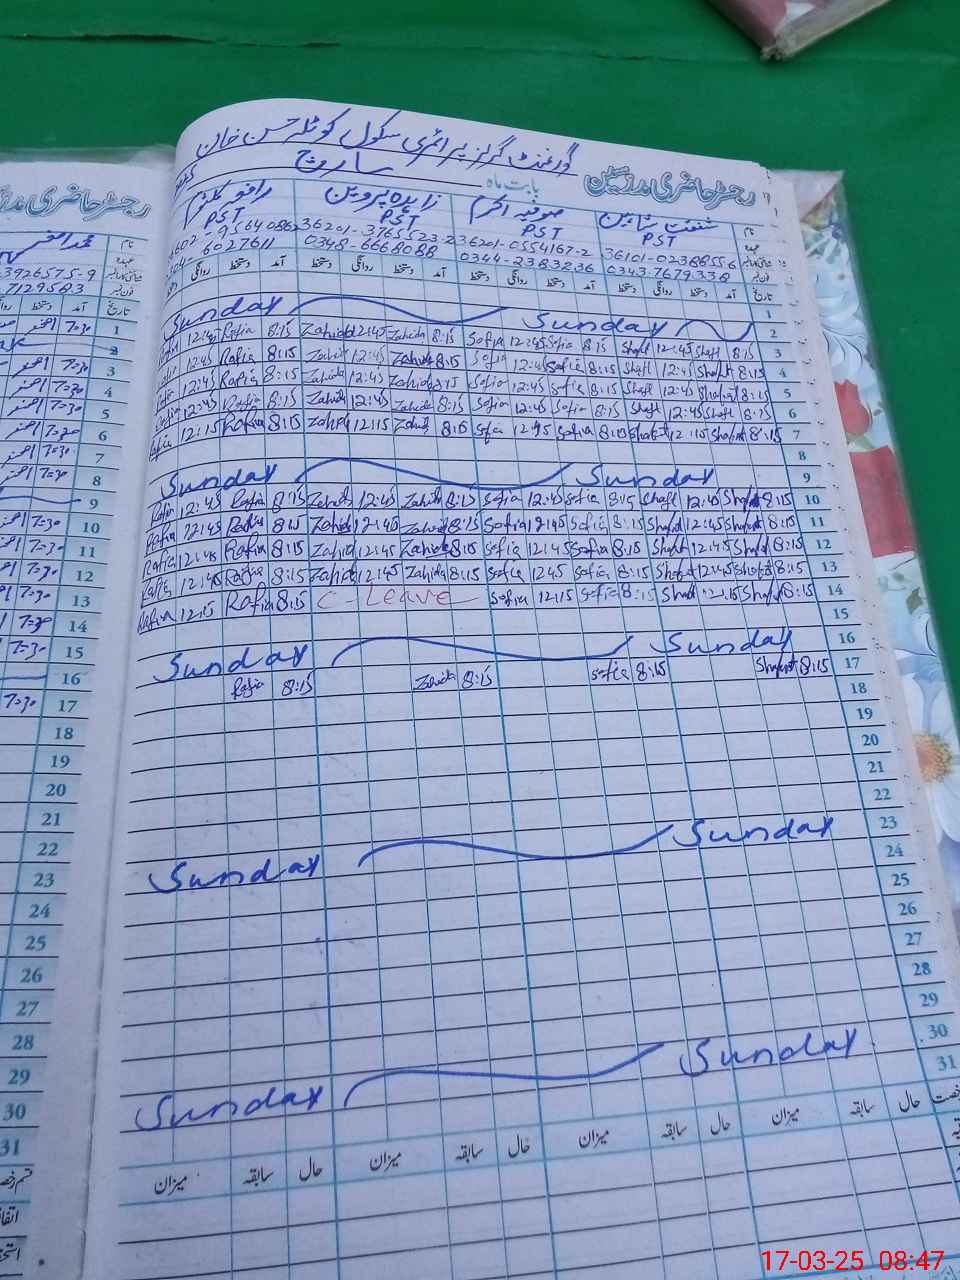 گورنمنٹ گرلز پرائمری سکول کوٹلہ حسن خان
رجسٹر حاضری مدرسین بابت ماہ مارچ
نام شفقت شاہین صوفیہ اکرم زاہدہ پروین
عہدہ PST PST PST PST
36101-02388556 36201-0554167-2 36201-3765523-2
0343-7679338 0344-2383236 0348-6668088 6027611
تاریخ آمد دستخط روانگی دستخط آمد دستخط روانگی دستخط آمد دستخط روانگی دستخط
1
Sunday Sunday 2
Rafia 12:45 Rafia 8:15 Zahida 12:45 Zahida 8:15 Sofia 12:45 Sofia 8:15 Shaft 12:45 Shaft 8:15 3
12:45 Rafia 8:15 Zahida 12:45 Zahida 8:15 Sofia 12:45 Sofia 8:15 Shaft 12:45 Shaft 8:15 4
12:45 Rafia 8:15 Zahida 12:45 Zahida 8:15 Sofia 12:45 Sofia 8:15 Shaft 12:45 Shaft 8:15 5
12:45 Rafia 8:15 Zahida 12:45 Zahida 8:15 Sofia 12:45 Sofia 8:15 Shaft 12:45 Shaft 8:15 6
Rafia 12:15 Rafia 8:15 Zahida 12:15 Zahida 8:15 Sofia 12:15 Sofia 8:15 Shaft 12:15 Shaft 8:15 7
8
Sunday Sunday 9
Rafia 12:45 Rafia 8:15 Zahida 12:45 Zahida 8:15 Sofia 12:45 Sofia 8:15 Shaft 12:45 Shaft 8:15 10
Rafia 12:45 Rafia 8:15 Zahida 12:45 Zahida 8:15 Sofia 12:45 Sofia 8:15 Shaft 12:45 Shaft 8:15 11
Rafia 12:45 Rafia 8:15 Zahida 12:45 Zahida 8:15 Sofia 12:45 Sofia 8:15 Shaft 12:45 Shaft 8:15 12
Rafia 12:45 Rafia 8:15 Zahida 12:45 Zahida 8:15 Sofia 12:45 Sofia 8:15 Shaft 12:45 Shaft 8:15 13
Rafia 12:15 Rafia 8:15 C-Leave Sofia 12:15 Sofia 8:15 Shaft 12:15 Shaft 8:15 14
15
Sunday Sunday 16
Rafia 8:15 Zahida 8:15 Sofia 8:15 Shaft 8:15 17
18
19
20
21
22
Sunday Sunday 23
24
25
26
27
28
29
Sunday Sunday 30
31
حال سابقہ میزان حال سابقہ میزان حال سابقہ میزان حال سابقہ میزان
رجسٹر حاضری
3926575-9
7129583
تاریخ آمد دستخط
7=30 1
2
7=30 3
7=30 4
7=30 5
7=30 6
7=30 7
7=30 8
9
7=30 10
7=30 11
7=30 12
7=30 13
7=30 14
7=30 15
16
7=30 17
18
19
20
21
22
23
24
25
26
27
28
29
30
31
17-03-25 08:47